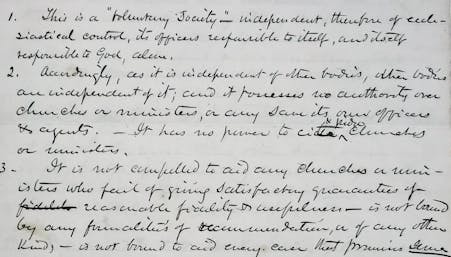 1. This is a "Voluntary Society" — independent, therefore of eccle-
siastical control, its officers responsible to itself, and itself
responsible to God, alone.
2. Accordingly, as it is independent of other bodies, other bodies
are independent of it; and it possesses no authority over
churches or ministers, or any save its own officers
& agents. — It has no power to cite & judge churches
or ministers.
3 — It is not compelled to aid any churches or min-
isters who fail of giving satisfactory guaranties of
fidelity reasonable fidelity & usefulness — is not bound
by any formalities of recommendation, or of any other
kind, — is not bound to aid every case that promises some